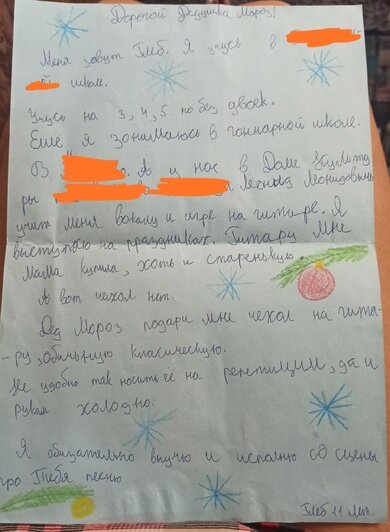 Дорогой Дедушка Мороз!
Меня зовут Глеб. Я учусь в
й школе.
Учусь на 3, 4, 5. но без двоек.
Еще я занимаюсь в гончарной школе.
В А у нас в Доме Культу
ры Леонид Леонидович
учит меня вокалу и игре на гитаре. Я
выступаю на праздниках. Гитару мне
мама купила, хоть и старенькую
А вот чехол нет.
Дед Мороз подари мне чехол на гита-
-ру, обычную класическую.
Не удобно так носить её на репетиции, да и
рукам холодно.
Я обязательно выучу и исполню со сцены
про Тебя песню
Глеб 11 лет.